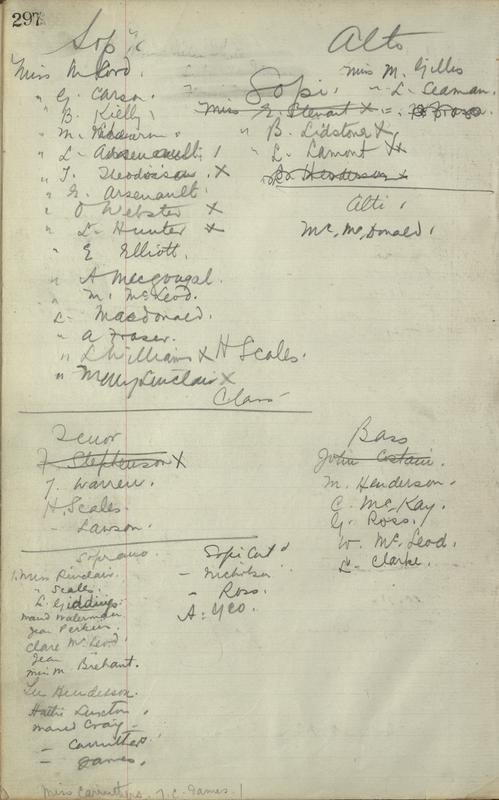 297
Sop
Miss M. Ford.
" G. Carson.
" B. Kielly
" M.
" L. Arsenault
" T. X
" E. Arsenault.
" O Webster X
" L. Hunter X
" E Elliott.
" A Macgougal.
" M. McLeod.
L. Macdonald.
" A Fraser.
" L Williams X H Scales.
" M Sinclair X
Class
Alto
Miss M. Gillis
" L. Seaman.
Sopi
Miss E. Stewart X
" B. Lidstone X
" L. Lamont XX
Henderson X
Alti
Mc. McDonald.
Tenor
Stephenson X
J. Warren.
H. Scales.
- Lawson.
Bass
John Costain.
M. Henderson.
C. McKay.
G. Ross.
W. McLeod.
L. Clarke.
Soprano.
1. Miss Sinclair.
" Scales.
L. Giddings.
Maud Waterman
Jean Perkins.
Clare McLeod
Jean "
Miss M. Brehaut.
Lee Henderson.
Hattie
Maud Craig
- Carruthers.
- James.
Miss Carruthers. J. C. James.
Sopi Cont'd
- Nicholson
- Ross.
A. Yeo.